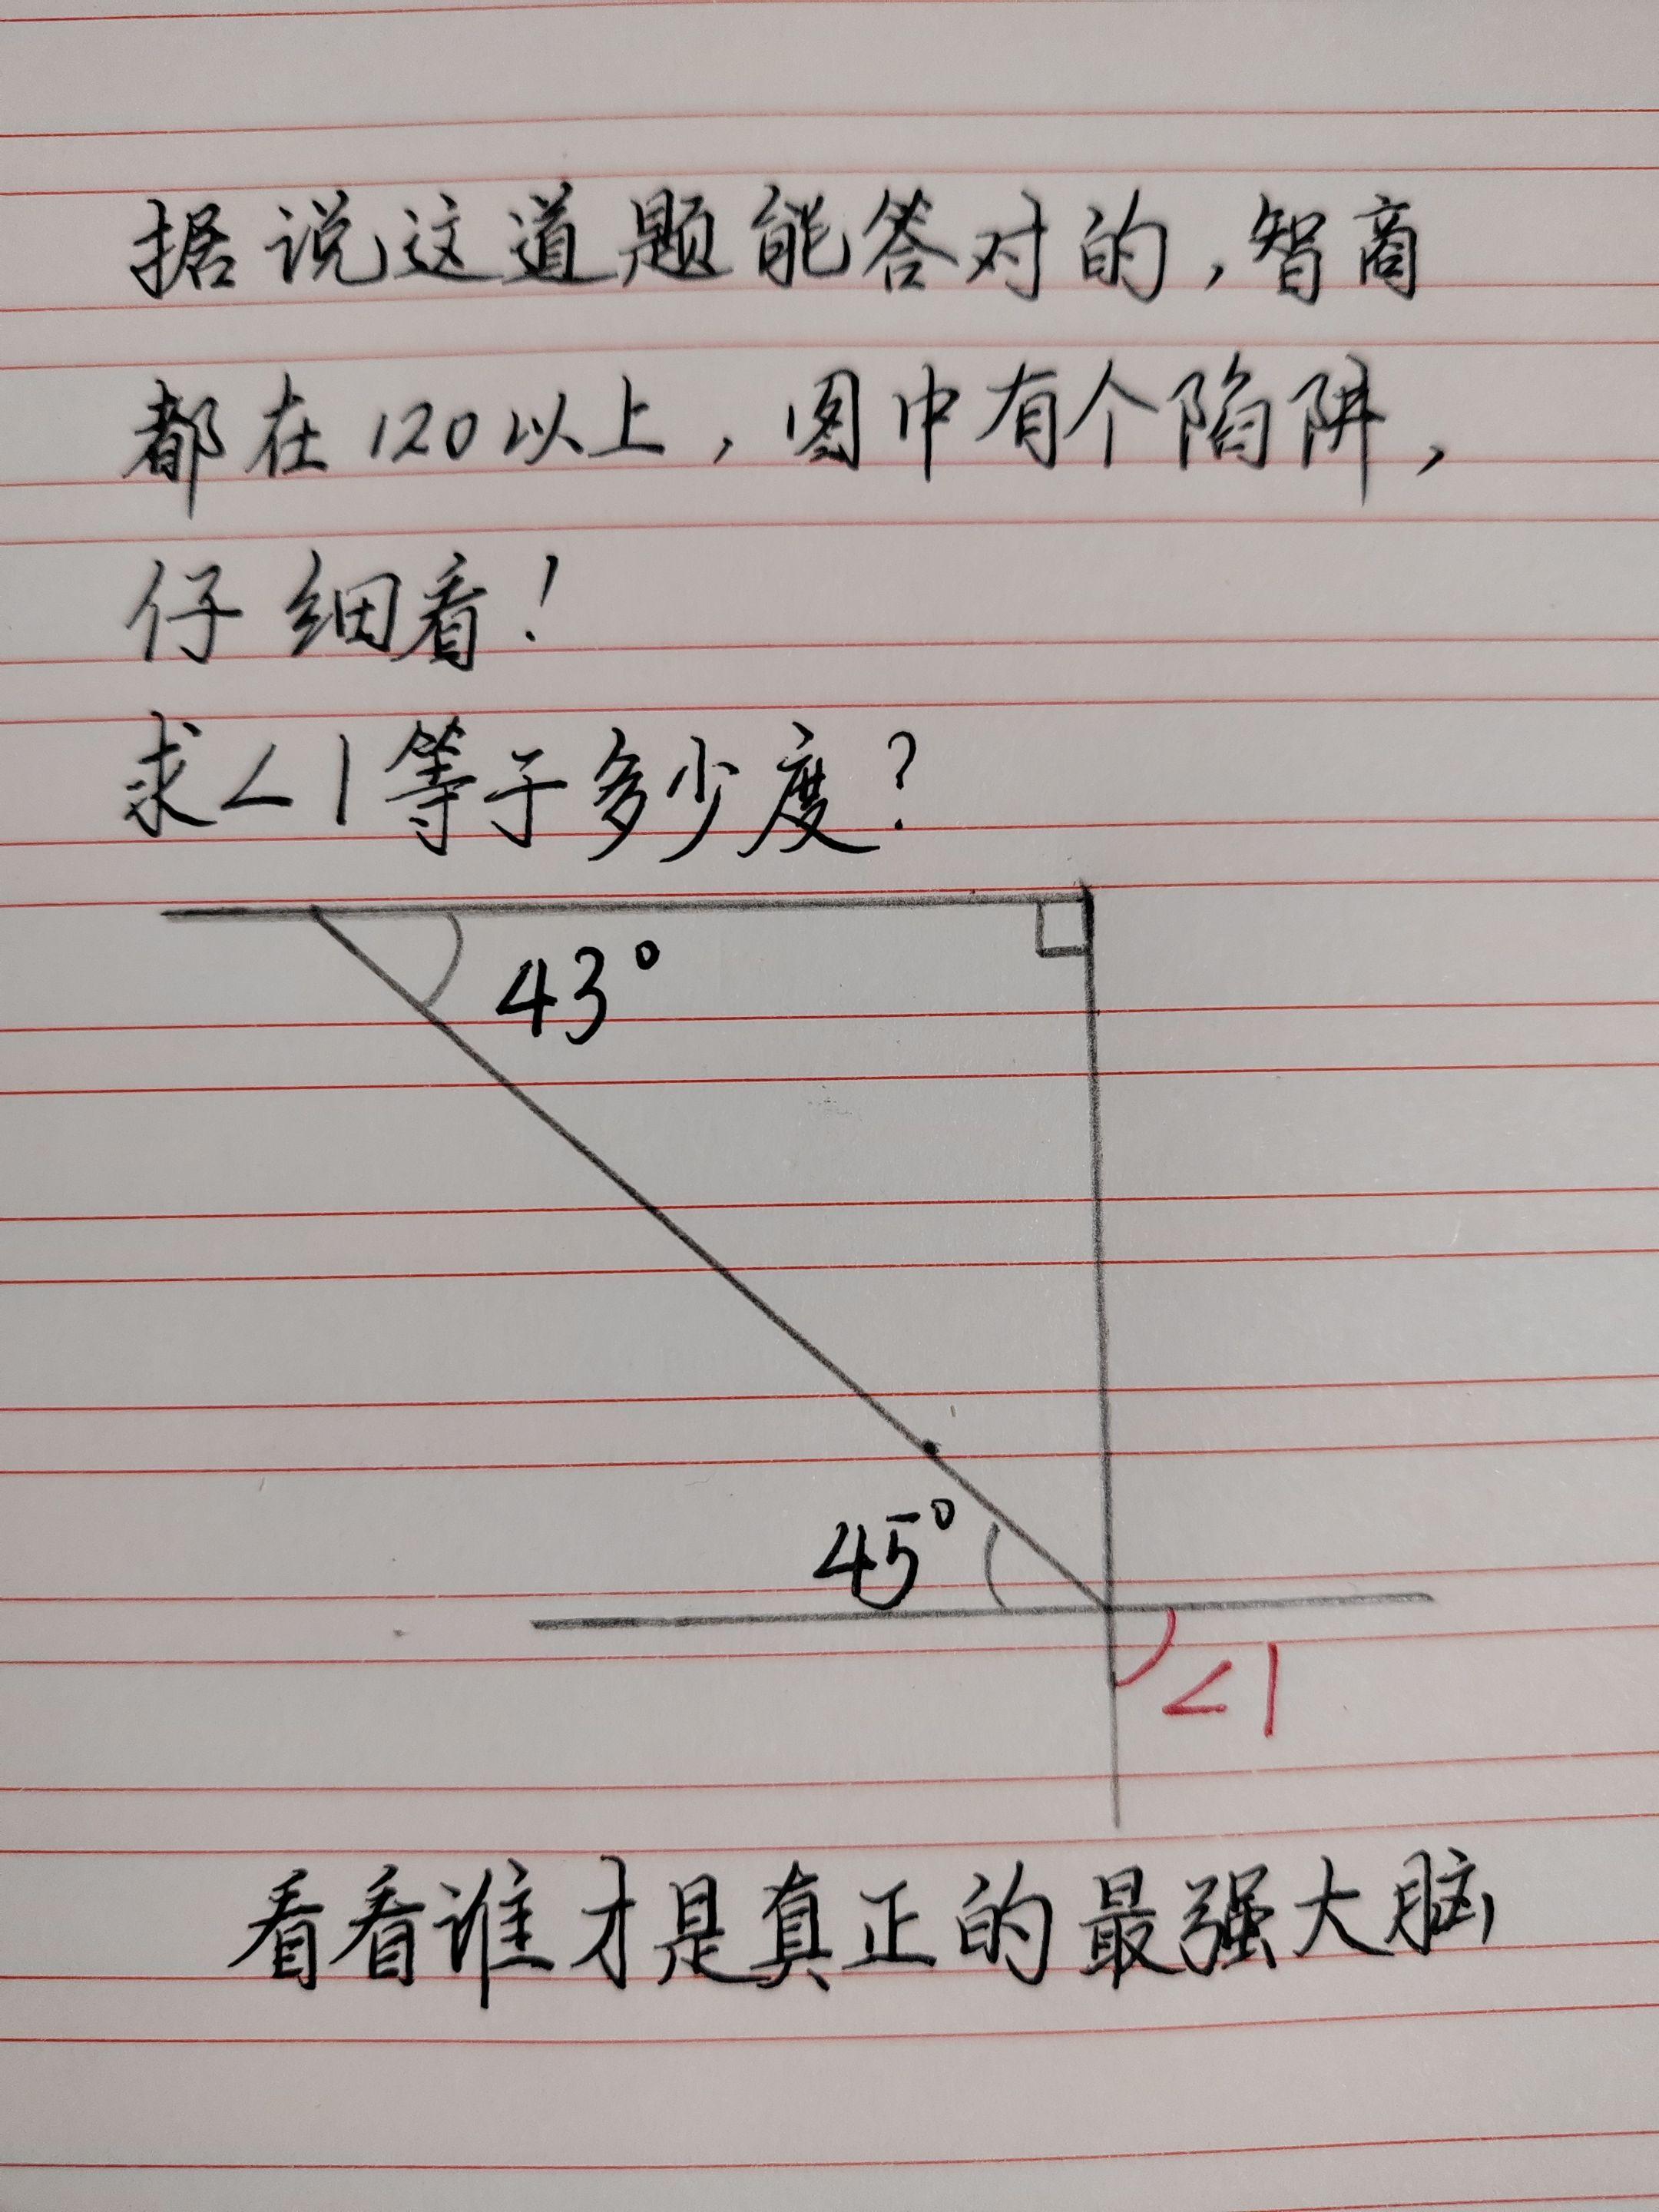 据说这道题能答对的,智商
都在120以上,图中有个陷阱,
仔细看!
求∠1等于多少度?
43°
45°
∠1
看看谁才是真正的最强大脑